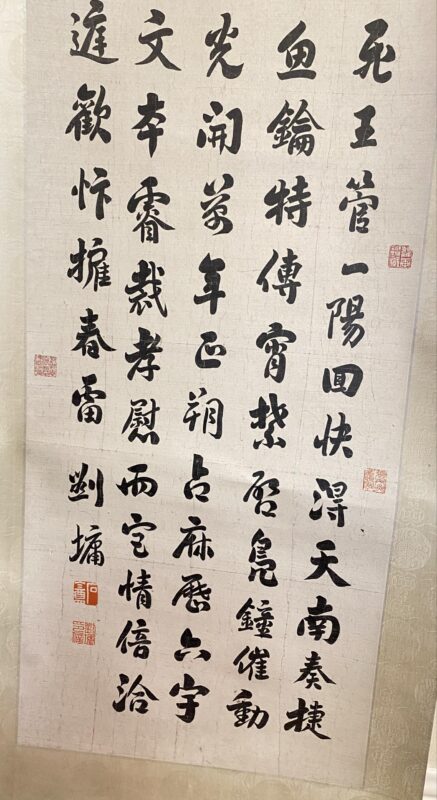 飛玉管一陽回快得天南奏捷
魚鑰特傳宵禁啓鳧鐘催動
光開萬年正朔占麻歷六宇
文本睿裁孝慰兩宮情倍洽
遐歡忭擁春雷 劉墉